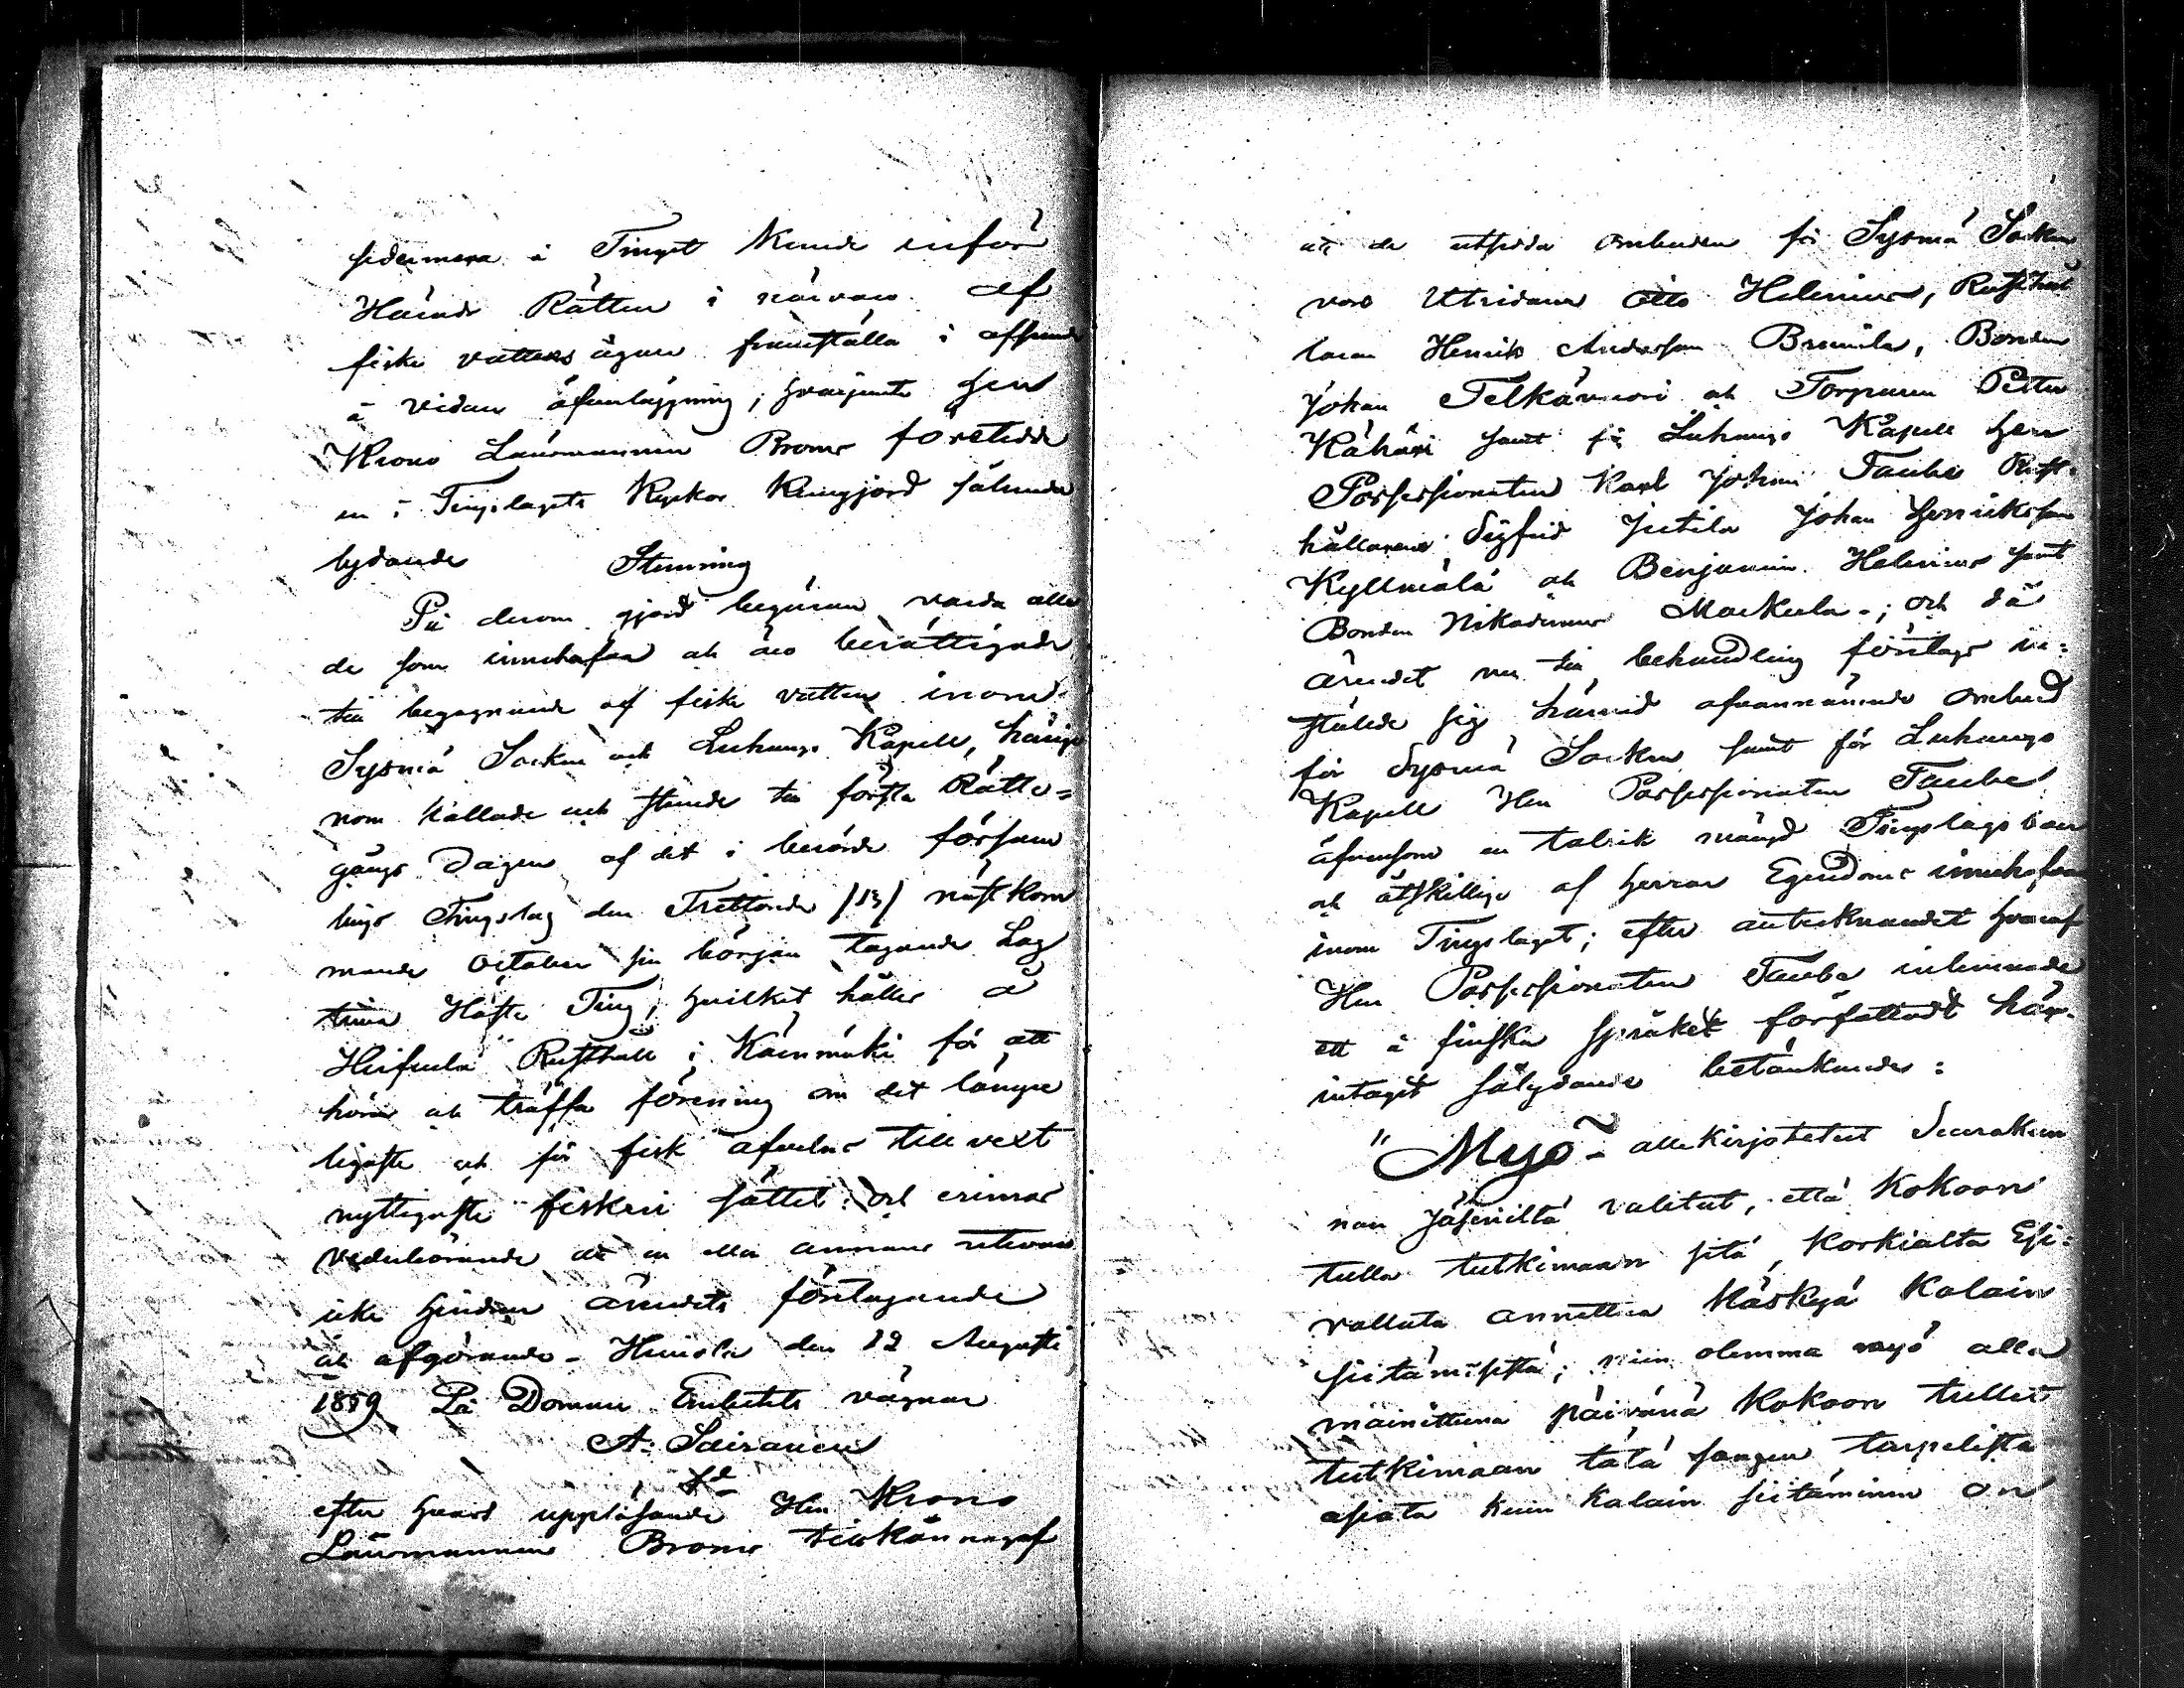 sidermera å Tinget kunde inför
Härads Rätten i närvaro af
fiske vattens ägare framställa i afseende
å vidare öfverläggning; hvarjemte Herr
Krono Länsmannen Broms företedde
en i Tingslagets Kyrkor kungjord sålunda
lydande Stemning
På derom gjord begäran varda alla
de som innehafva och äro berättigade
till begagnande af fiske vatten inom
Sysmä Socken och Luhango Kapell, härige
nom kallade och stemde till första Rätte=
gångs Dagen af det i berörde försam
lings Tingslag den Trettonde /13/ nästkom
mande October sin början tagande Lag
tima Höste Ting, hvilket hålles å
Rusthåll i Kärmmäki för att
höras och träffa förening om det lämpe
ligaste och för fisk afvelns tillvext
nyttigaste fiskeri sättet: och erinras
vederbörande att en eller annans utevaro
icke hindrar ärendets företagande
och afgörande. Heinola den 12 Augusti
1859 På Domare Embetets vägnar
A. Sairanen
efter hvars uppläsande Herr Krono
Länsmannen Broms tillkännagaf
att de utsedda ombuden för Sysmä Socken
voro Utridaren Otto Helenius, Rusthål
laren Henrik Andersson Bromila, Bonden
Johan Telkämäri och Torparen Petter
Kähäri samt för Luhango Kapell Herr
Possessionaten Karl Johan Taube Rust=
hållarene Sigfrid Jutila Johan Henriksson
Kyllmälä och Benjamin Helenius samt
Bonden Nikodemus Markula.; och då
ärendet nu till behandling företogs in=
stälde sig härvid ofvannämnde ombud
för Sysmä Socken samt för Luhango
Kapell Herr Possessionaten Taube
äfvensom en talrik mängd Tingslagsboer
och åtskillige af Herrar Egendoms innehafvare
inom Tingslaget; efter antecknandet hvaraf
Herr Possessionaten Taube inlemnade
ett å finska språket författadt här
intaget sålydande betänkande:
"Myö allekirjotetut Seurakun
nan Jäseniltä valitut, että kokoon
tulla tutkimaan sitä, korkialta Esi=
vallata annettua käskyä Kalain
siitämisestä; niin olemma myö alla
mainittuna päivänä kokoon tullet
tutkimaan tätä sangen tarpelista
asiata kuin kalain siitäminen on